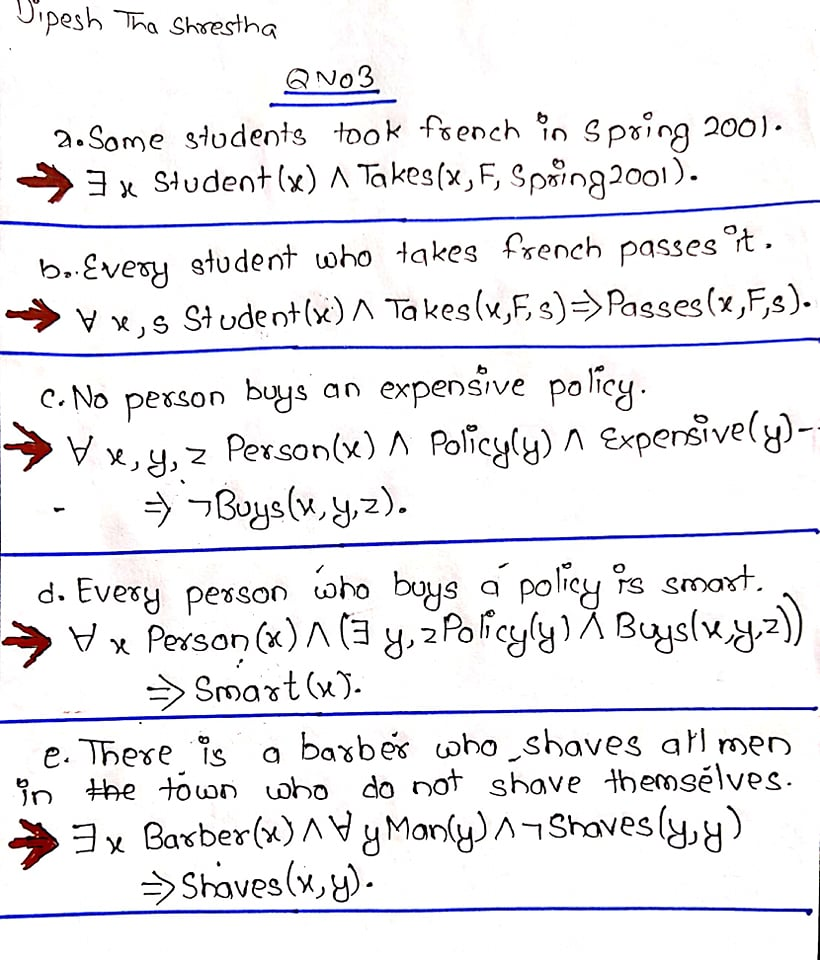 Dipesh Tha Shrestha
QNo3
a. Some students took french in Spring 2001.
∃ x Student(x) ∧ Takes(x, F, Spring2001).
b. Every student who takes french passes it.
∀ x, s Student(x) ∧ Takes(x, F, s) ⇒ Passes(x, F, s).
c. No person buys an expensive policy.
∀ x, y, z Person(x) ∧ Policy(y) ∧ Expensive(y) -
- ⇒ ¬Buys(x, y, z).
d. Every person who buys a policy is smart.
∀ x Person(x) ∧ (∃ y, z Policy(y) ∧ Buys(x, y, z))
⇒ Smart(x).
e. There is a barber who shaves all men
in the town who do not shave themselves.
∃ x Barber(x) ∧ ∀ y Man(y) ∧ ¬Shaves(y, y)
⇒ Shaves(x, y).